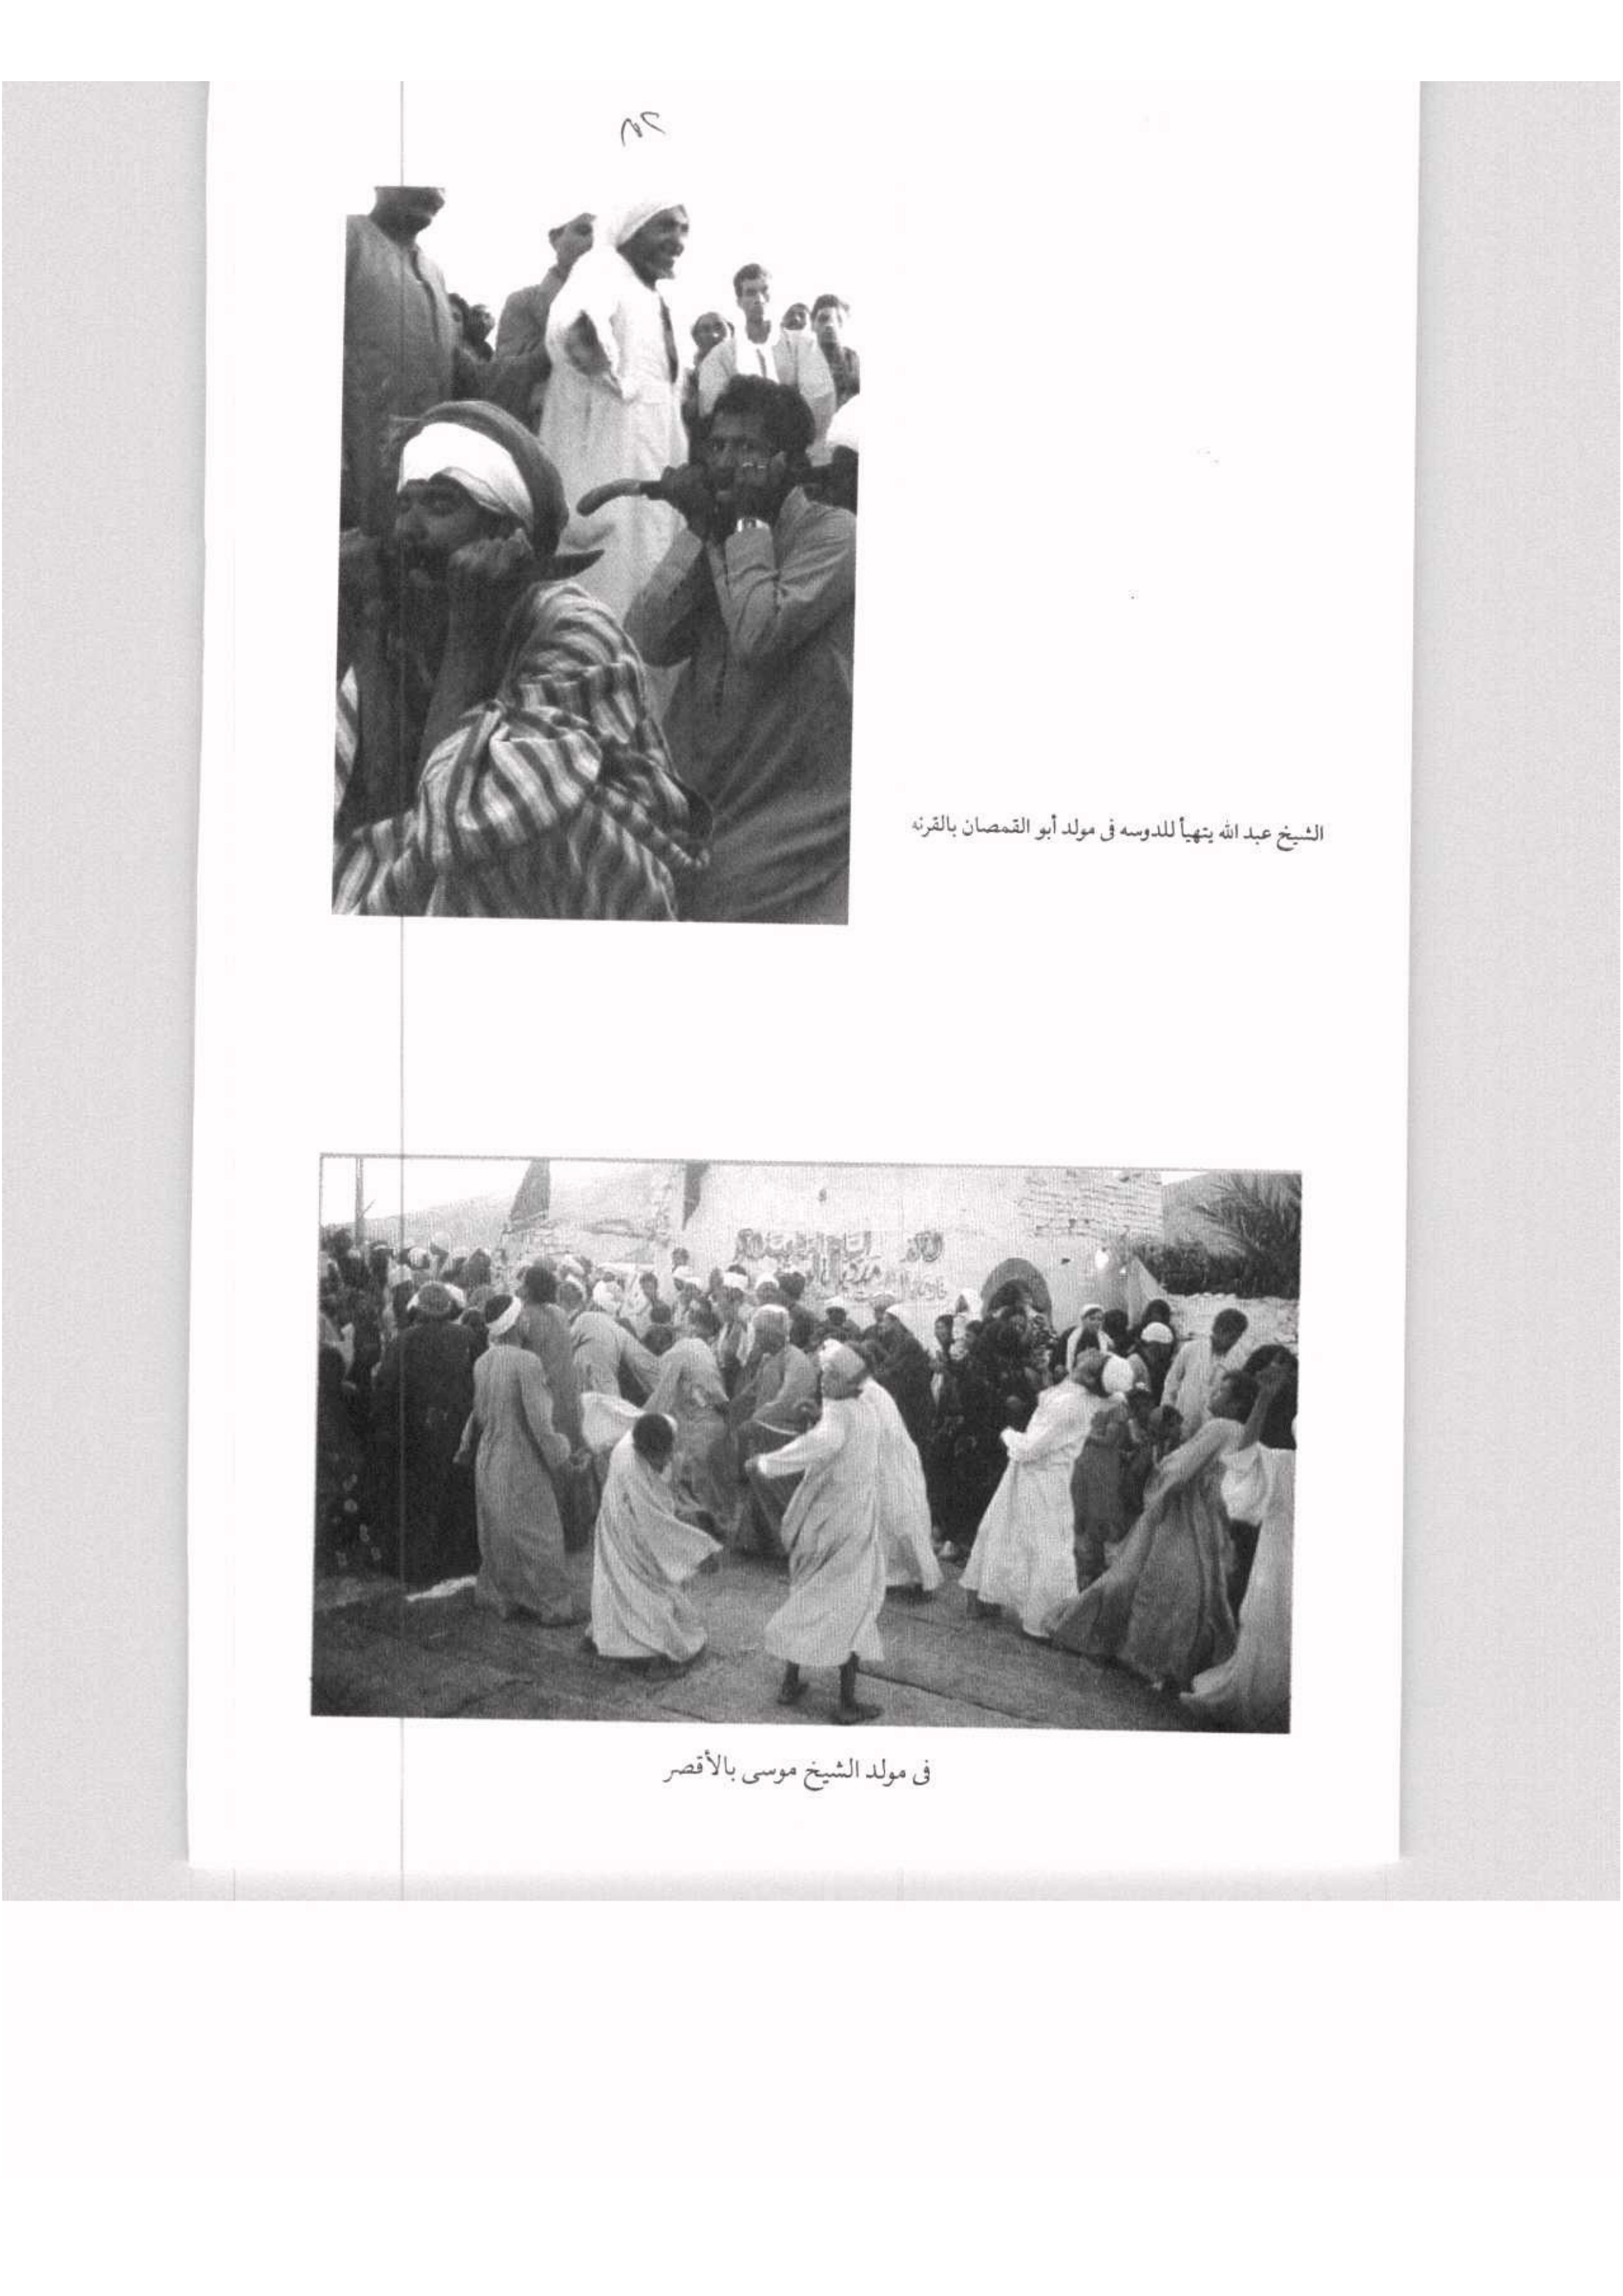 الشيخ عبد الله يتهيأ للدوسه فى مولد أبو القمصان بالقرنه
فى مولد الشيخ موسى بالأقصر